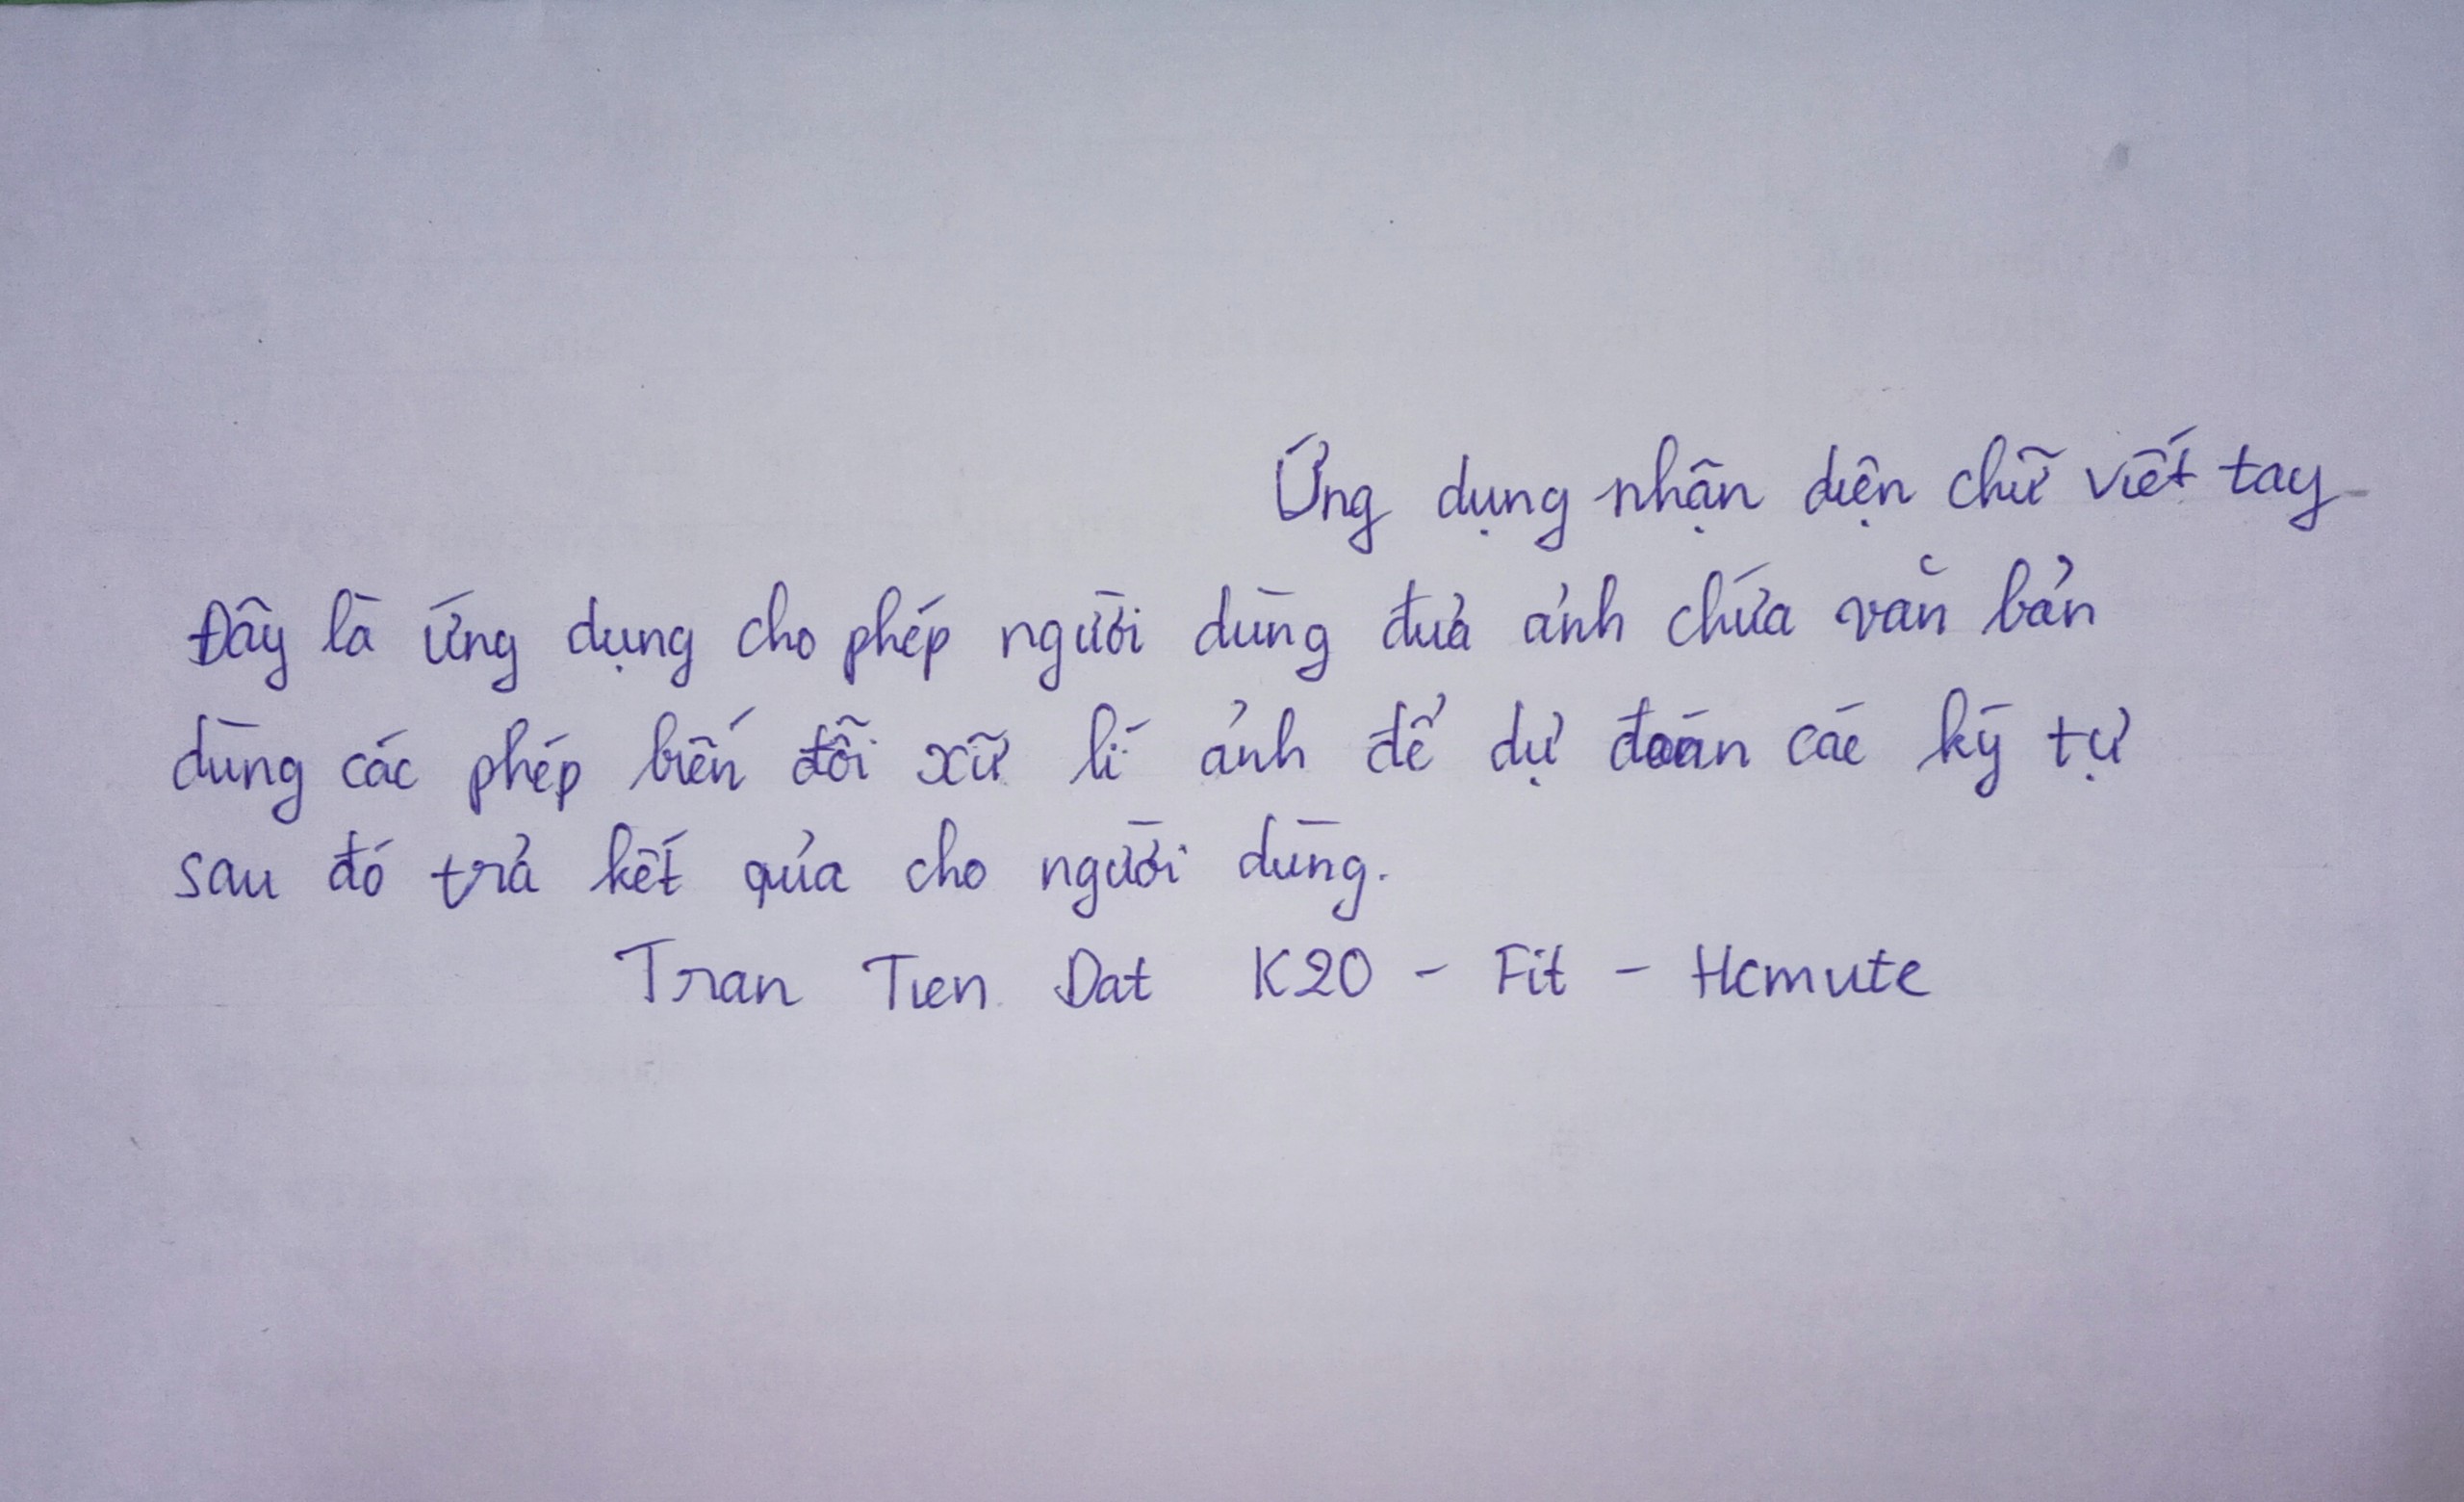 Ứng dụng nhận diện chữ viết tay
Đây là ứng dụng cho phép người dùng đưa ảnh chứa văn bản
dùng các phép biến đỗi xữ lí ảnh để dự đoán các ký tự
sau đó trả kết qủa cho người dùng.
Tran Tien Dat K20 - Fit - Hcmute